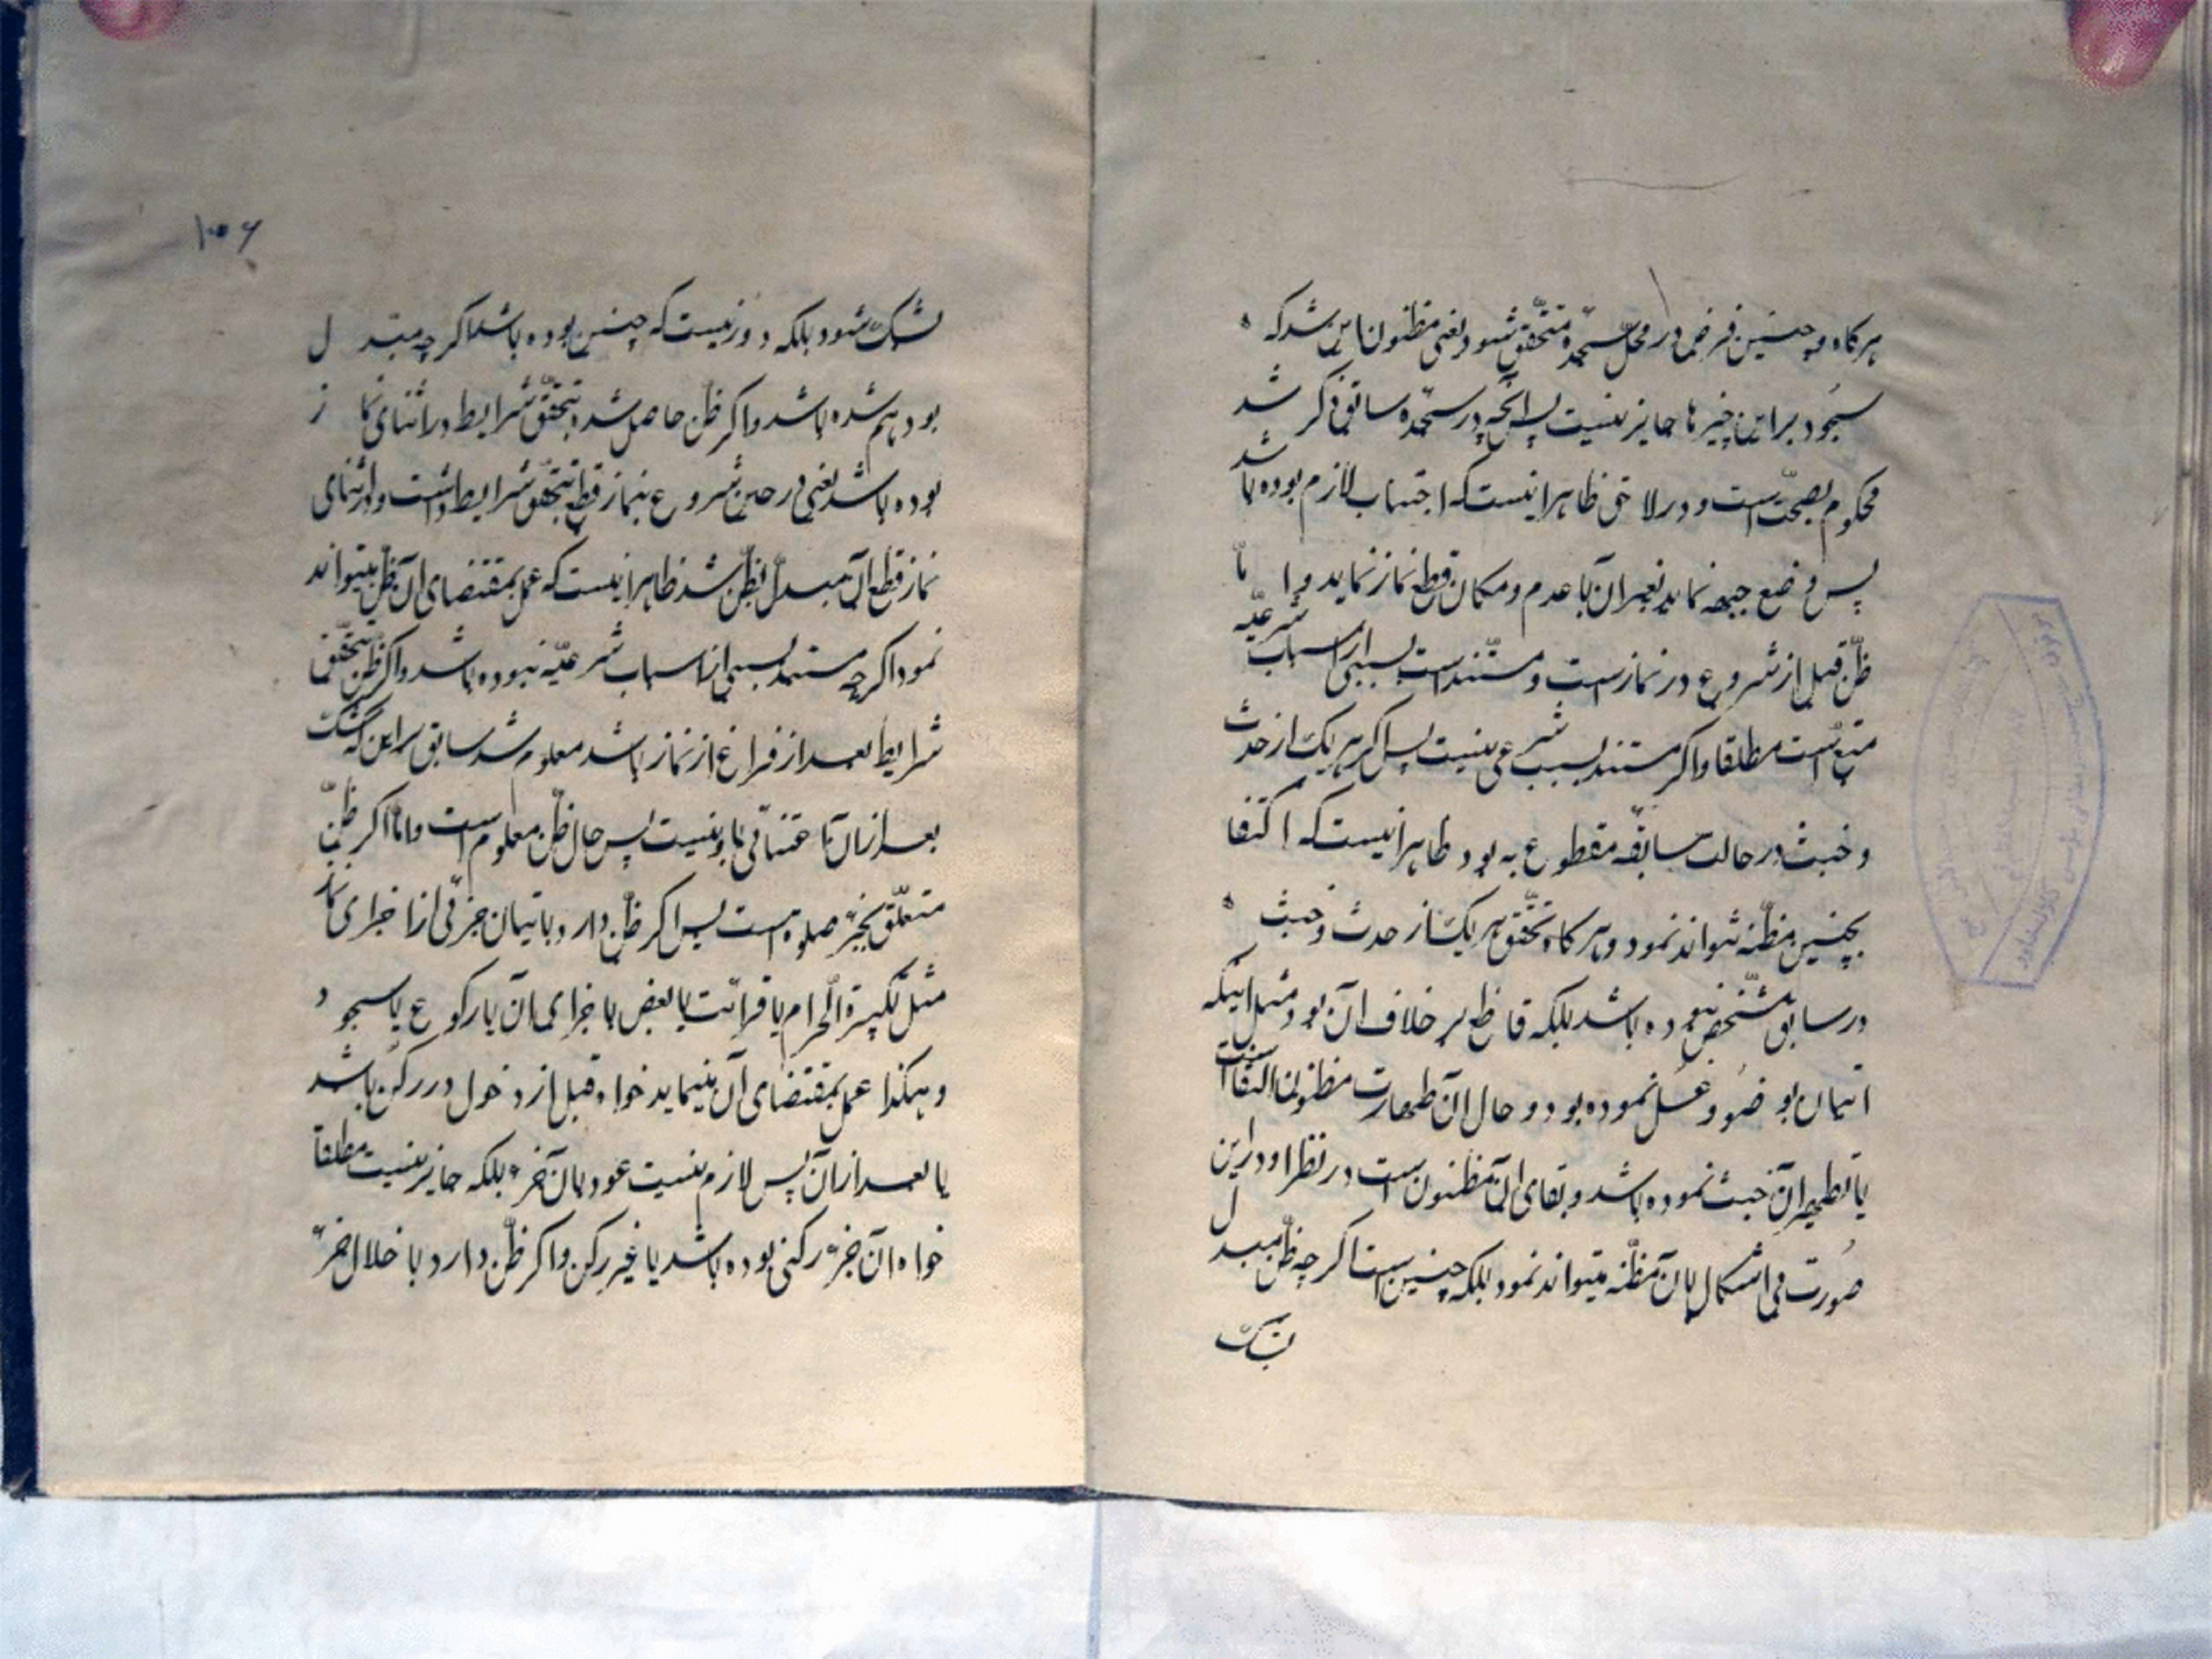 هرگاه چنین فرض در محلّ سجده متحقق شود یعنی مظنون این شد که
سجود بر این چیزها جایز نیست پس آنچه در سجده سابق ذکر شد
محکوم بصحّت است و در لاحق ظاهر اینست که اجتناب لازم بوده باشد
پس وضع جبهه نماید بغیر آن با عدم و مکان قطع نماز نماید و امّا
ظنّ قبل از شروع در نماز است و مستند است بسببی از اسباب شرعیّه
متبع است مطلقا و اگر مستند بسبب شرعی نیست پس اگر هر یک از حدث
و خبث در حالت سابقه مقطوع به بود ظاهر اینست که اکتفا
بچنین مظنّه نتواند نمود و هرگاه تحقّق هر یک از حدث و خبث
در سابق مشخّص نبوده باشد بلکه قاطع بر خلاف آن بود مثل اینکه
اتیان بوضو و غسل نموده بود و حال آن طهارت مظنون
یا تطهیر آن خبث نموده باشد و بقای آن مظنون است در نظر او در این
صورت فی اشکال بآن مظنّه میتواند نمود بلکه چنین است اگر چه ظنّ مبدل
بشک
۱۰۶
بشک شود بلکه دور نیست که چنین بوده باشد اگر چه مبتدل
بود هم شده باشد و اگر ظن حاصل شد بتحقّق شرایط در اثنای نماز
بوده باشد یعنی در حین شروع بنماز قطع بتحقق شرایط داشت و در اثنای
نماز قطع آن مبدل بظنّ شد ظاهر اینست که عمل بمقتضای آن ظن میتواند
نمود اگر چه مستند بسببی از اسباب شرعیّه نبوده باشد و اگر ظن بتحقّق
شرایط بعد از فراغ از نماز باشد معلوم شد سابق بر این که شکّ
بعد از آن اعتنائی باو نیست پس حال ظن معلوم است و امّا اگر ظنّ
متعلّق بجزء صلوة است پس اگر ظن دارد باتیان جزئی از اجزای نماز
مثل تکبیرة الحرام یا قرائت یا بعض با جزای آن یا رکوع یا سجود
و هکذا عمل بمقتضای آن مینماید خواه قبل از دخول در رکن باشد
یا بعد از آن پس لازم نیست عود بآن جزء بلکه جایز نیست مطلقا
خواه آن جزء رکنی بوده باشد یا غیر رکن و اگر ظنّ دارد با خلال جزء